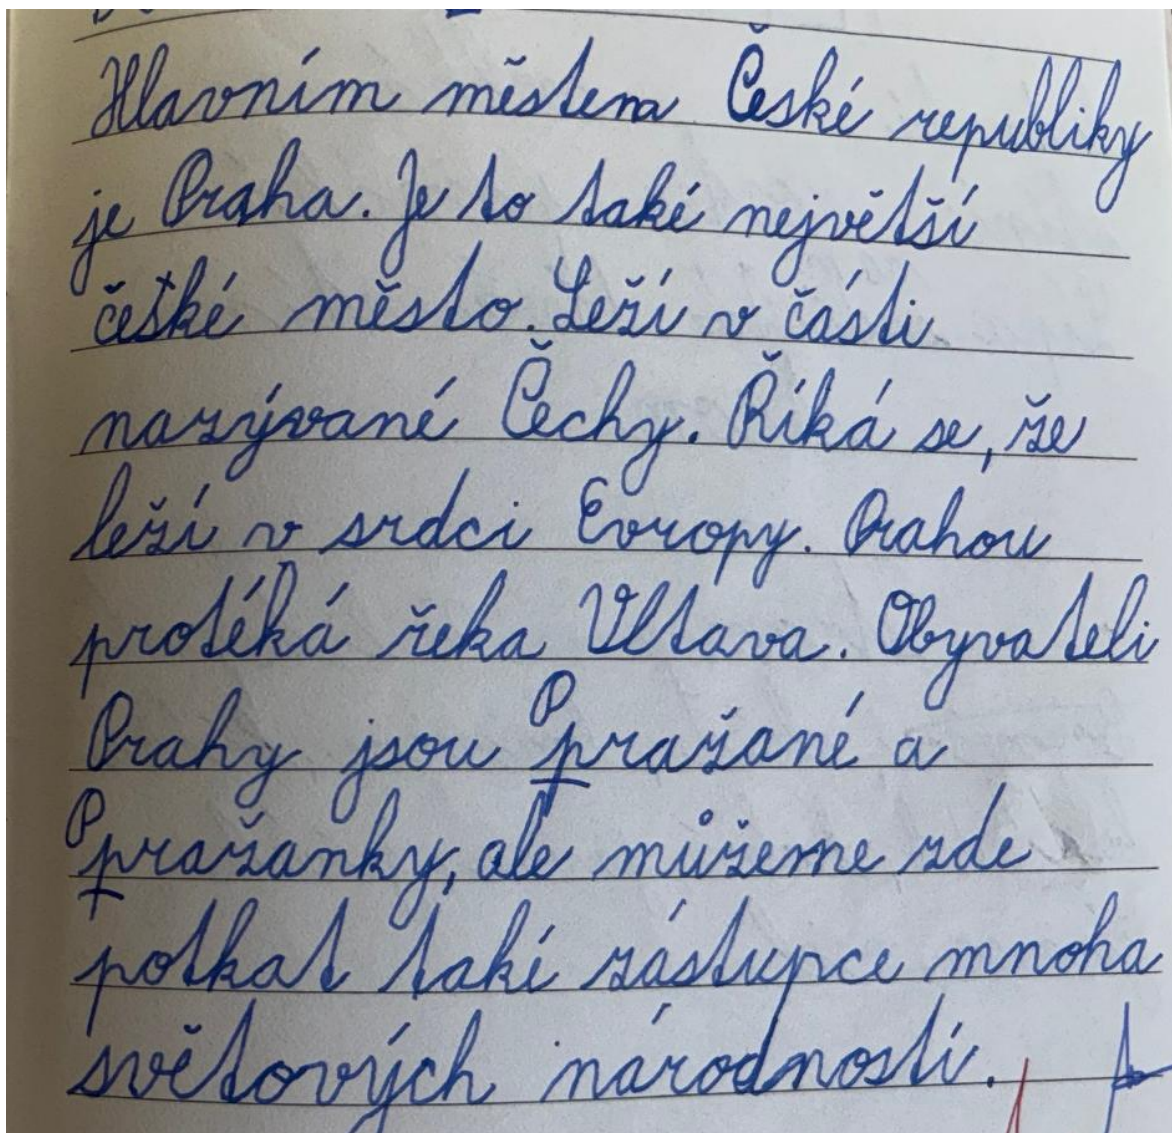 Hlavním městem České republiky
je Praha. Je to také největší
české město. Leží v části
nazývané Čechy. Říká se, že
leží v srdci Evropy. Prahou
protéká řeka Vltava. Obyvateli
Prahy jsou Pražané a
Pražanky, ale můžeme zde
potkat také zástupce mnoha
světových národností.